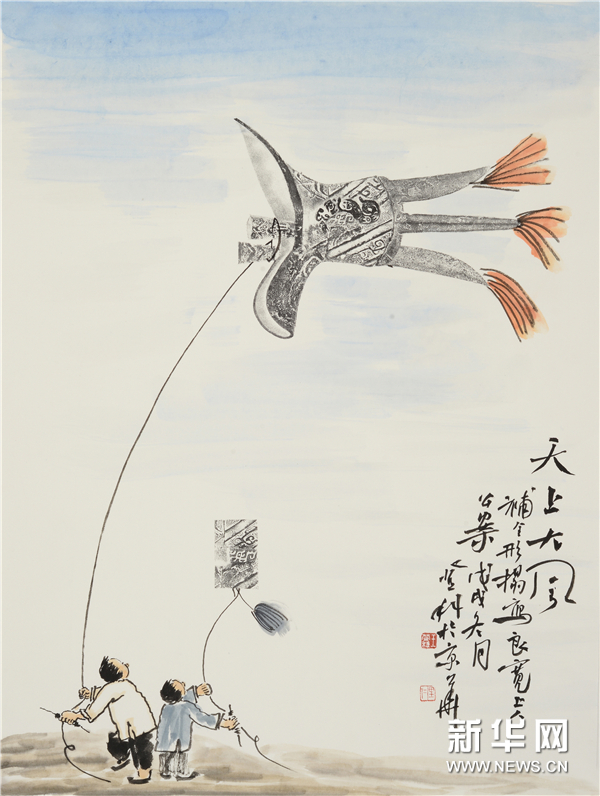 天上大风
補全形搨寫良寬上人
公案 戊戌冬月
登科於京華
新华网
WWW.NEWS.CN